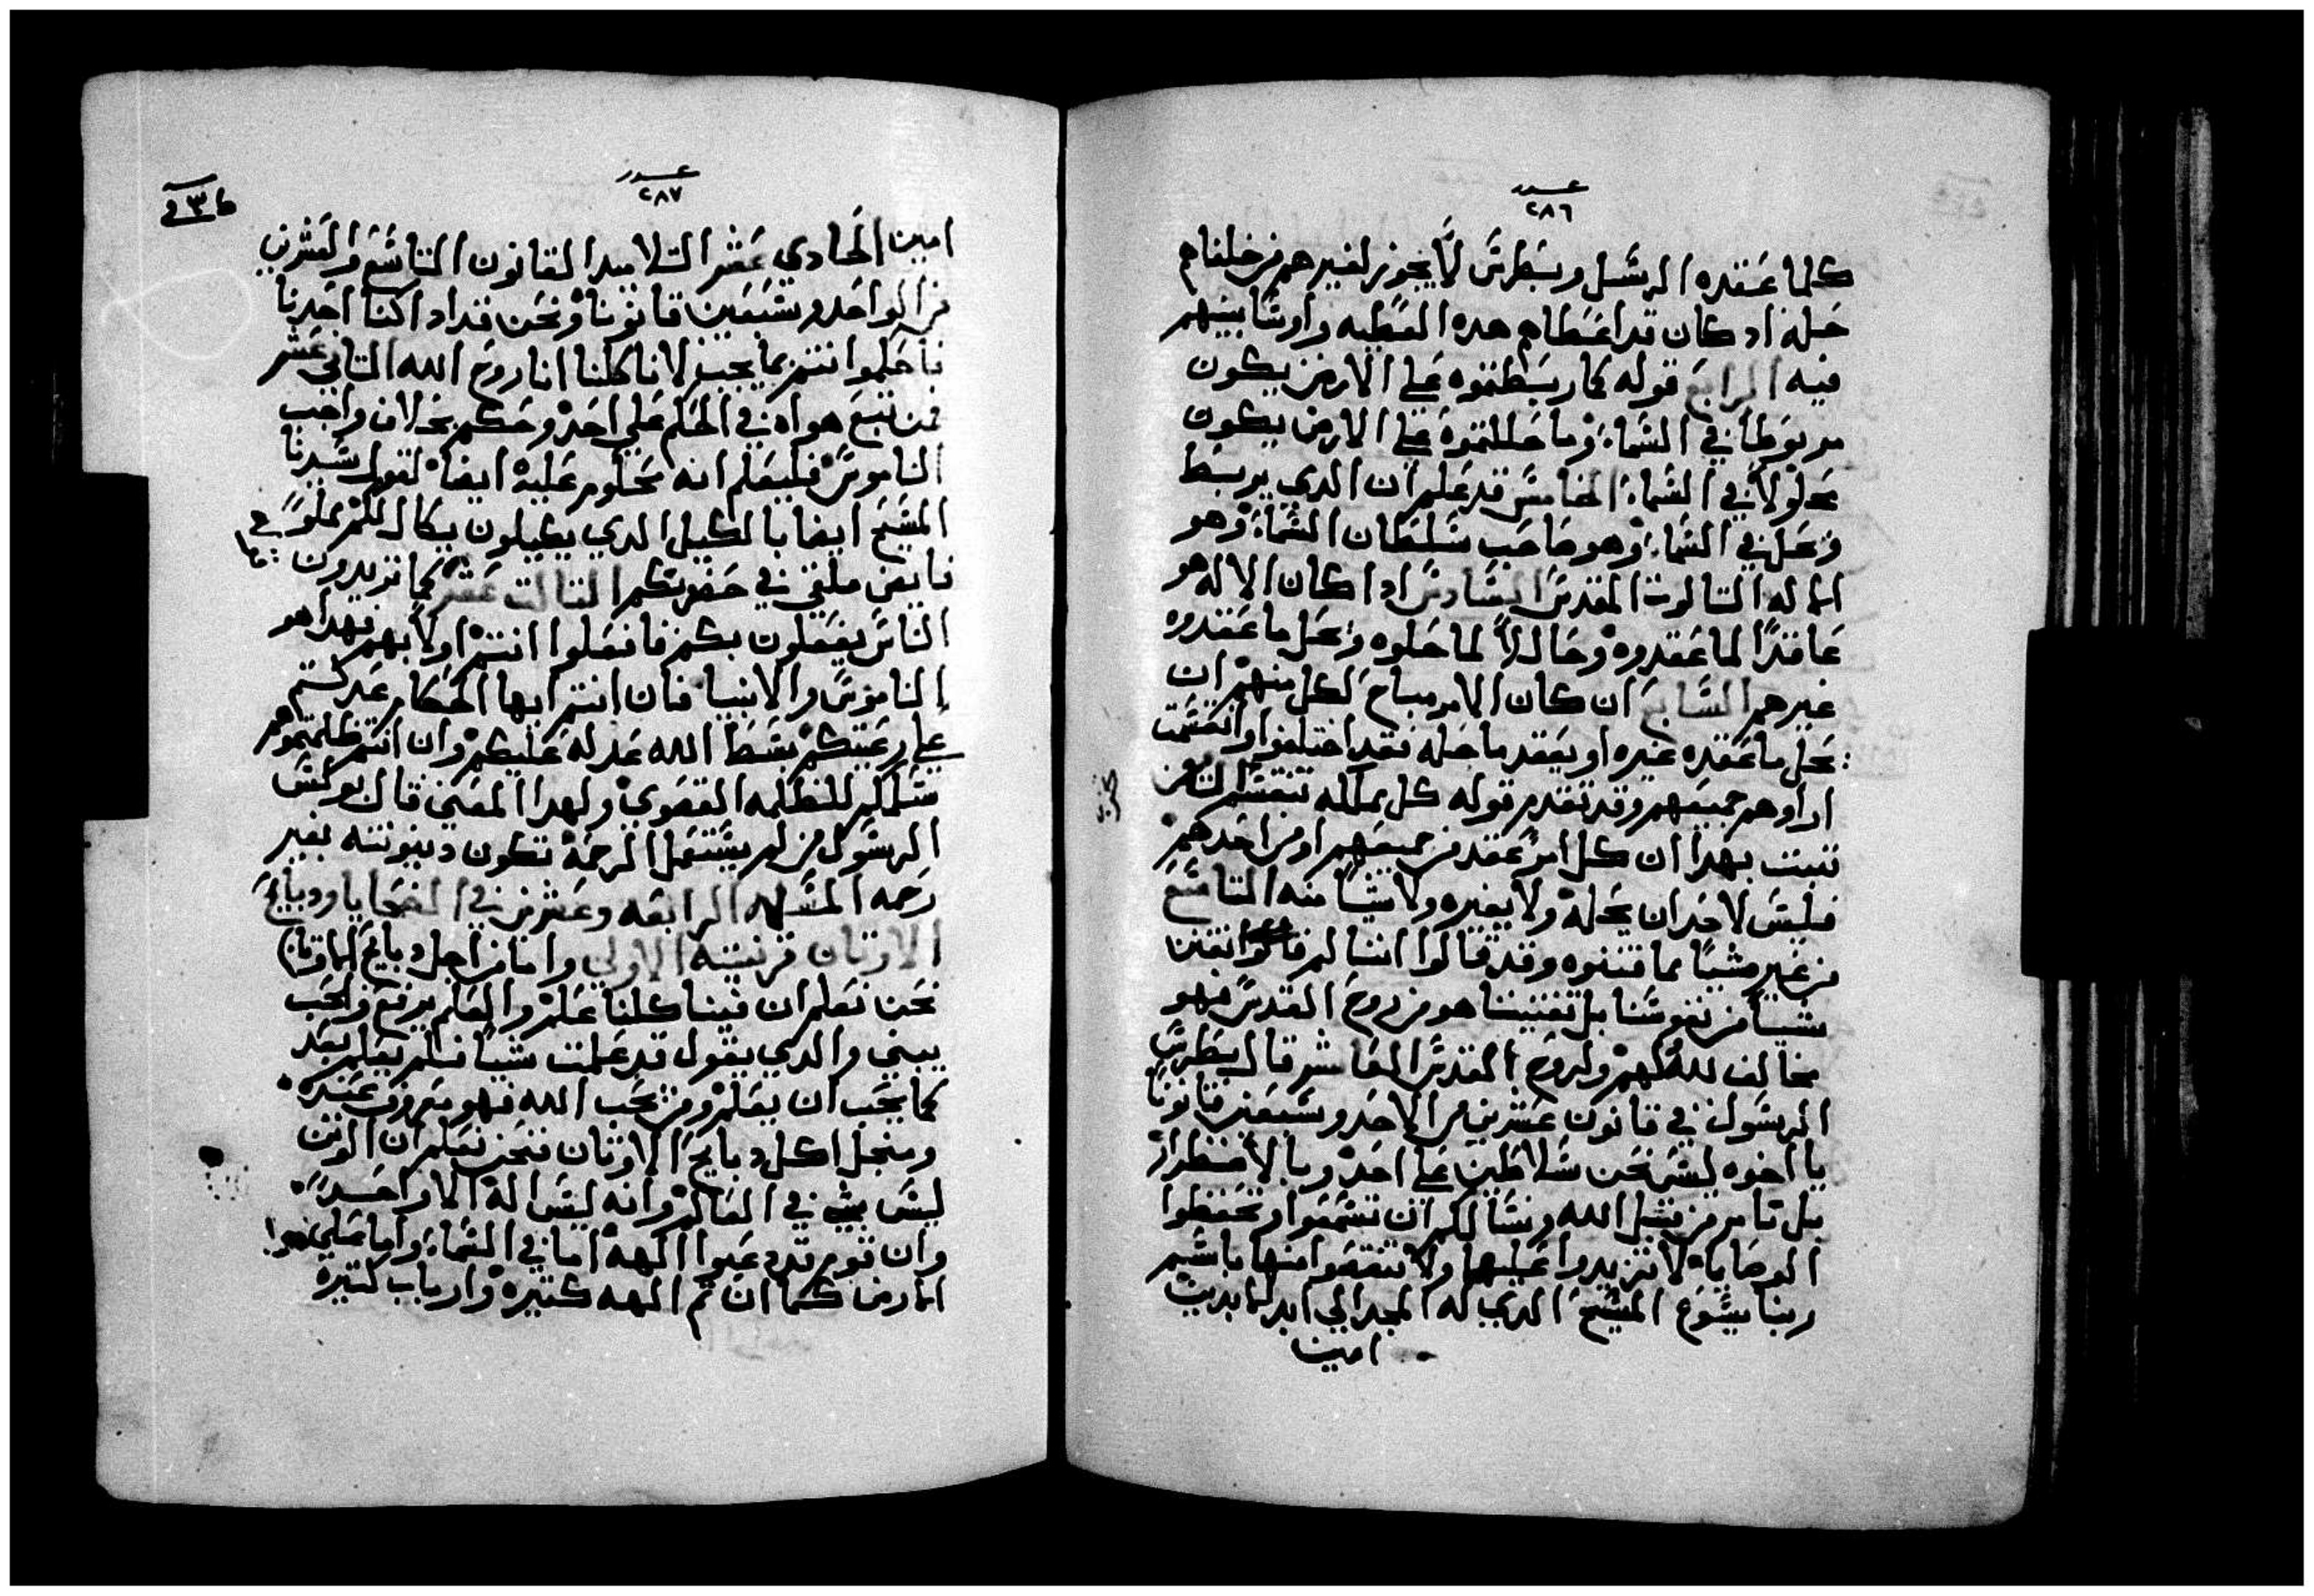 عدد
٢٨٦
كلما عقده الرسل وبطرس لا يجوز لغيرهم من خلفاهم
حله اد كان قد اعطاهم هده العطيه واوسا بينهم
فيه الرابع قوله كلما ربطتموه علي الارض يكون
مربوطا في السماء وما حللتموه علي الارض يكون
محلولا في السماء الخامس قد علم ان الدي يربط
ويحل في السماء وهو صاحب سلطان السماء وهو
الاله التالوت المقدس السادس ادا كان الاله هو
عاقدا لما عقدوه وحاللا لما حلوه ويحل ما عقدوه
غيرهم السابع ان كان الامر مباح لكل منهم ان
يحل ما عقده غيره او يعقد ما حله فقد اختلفوا وانقسمت
اراوهم جميعهم وقد تقدم قوله كل مملكه تنقسم
تبت بهدا ان كل امر عقد من جميعهم او من احدهم
فليس لاحد ان يحله ولا يغيره ولا شيا منه التاسع
من غير شيا مما قننوه وقد قالوا اننا لم
شيا من نفوسنا بل تقنيننا هو من روح القدس فهو
مخالف لله ولهم ولروح القدس العاشر قال بطرس
الرسول في قانون عشرين من الاحد وسبعين قانونا
يا اخوه ليس نحن سلاطين علي احد وبالاضطرار
بل نامر من قبل الله ونسالكم ان تسمعوا وتحفظوا
الوصايا لا تزيدوا عليها ولا تنقصوا منها باسم
ربنا يسوع المسيح الدي له المجد الي ابد الابدين
امين
عدد
٢٨٧
امين الحادي عشر التلاميد القانون التاسع والعشرين
من الواحد وسبعين قانونا ونحن قد اداكنا اجدنا
فاحكموا انتم بما يجب لاننا كلنا انا روح الله التاني عشر
فمن تبع هواه في الحكم علي احد وحكم بخلاف واجب
الناموس فليعلم انه محكوم عليه ايضا لقول سيدنا
المسيح ايضا بالكيل الدي يكيلون يكال لكم مملوا
فايض ملقي في حضونكم التالت عشر كما تريدون
الناس يفعلون بكم فافعلوا انتم اولا بهم فهدا هو
الناموس والانبيا فان انتم ايها الحكام عدلتم
علي رعيتكم بسط الله عدله عليكم وان انتم ظلمتموهم
سلمكم للظلمه القصوي ولهدا المعني قال بولس
الرسول من لم يستعمل الرحمة تكون دينونته بغير
رحمه المسله الرابعه وعشرين في الضحايا ودبايح
الاوتان قرنتيه الاولي واما من اجل دبايح الاوتان
نحن نعلم ان فينا كلنا علم والعلم يرفع والحب
يبني والدي يقول قد علمت شيا فلم يعلم بعد
كما يجب ان يعلم ومن يحب الله فهو معروف عنده
ومنجل اكل دبايح الاوتان فنحن نعلم ان الوتن
ليس بشي في العالم وانه ليس اله الا واحد
وان قوم قد دعيوا الهه اما في السماء واما علي
الارض كما ان تم الهه كتيره وارباب كتيره